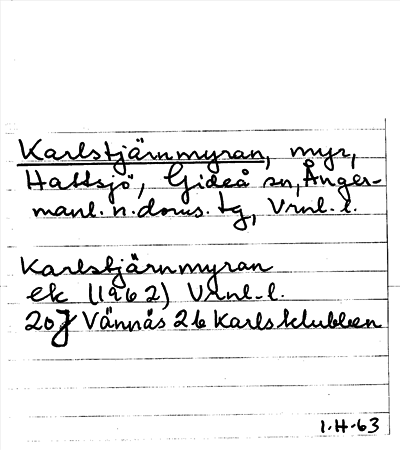 Karlstjärnmyran, myr,
Hattsjö, Gideå sn, Ånger-
manl. n. doms. tg, Vrnl. l.
Karlstjärnmyran
ek (1962) Vrnl. l.
20J Vännäs 2b Karlsklubben
1-H-63